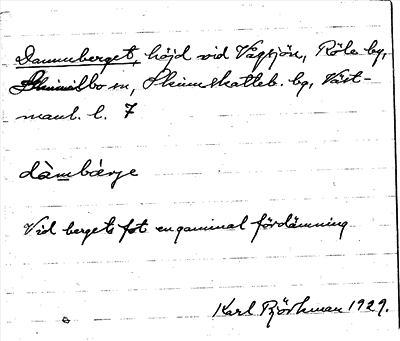 Dammberget, höjd vid Vågsjön, Röle by,
Skinnskatteb. bg, Väst-
manl. l. 7
dàmbárje
Vid bergets fot en gammal fördämning
Karl Björkman 1929.